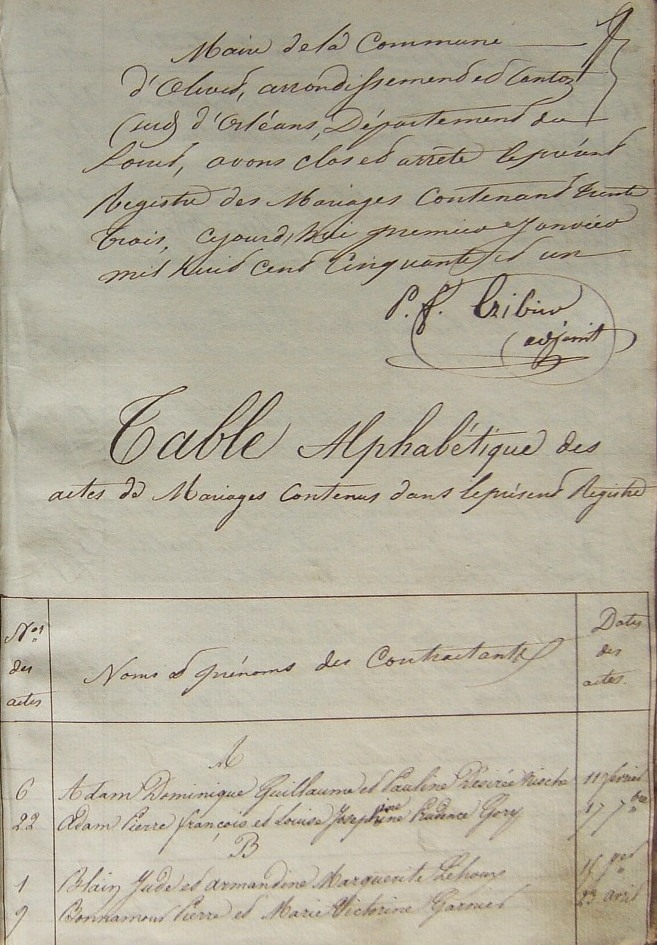 Maire de la Commune
d'Olivet, arrondissement et Canton
(sud) d'Orléans, Département du
Loiret, avons clos et arrêté le présent
Registre des Mariages Contenant trente
trois, cejourd'hui premier Janvier
mil huit cent Cinquante et un
P. f.
adjoint
Table Alphabétique des
actes de Mariages Contenus dans le présent Registre
Nos des actes
Noms et prénoms des Contractants
Dates des actes.
A
6 Adam Dominique Guillaume et Pauline Désirée 11 février
22 Adam Pierre françois et Louise Josephine Prudence Gory 17 7bre
B
1 Blain Jude et armandine Marguerite
9 Bonnamour Pierre et Marie Victorine Garnier 23 avril